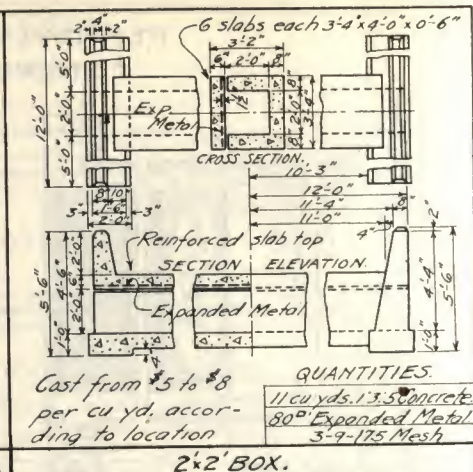 6 slabs each 3'-4" x 4'-0" x 0'-6"
2" 4" 2"
3'-2"
6" 2'-0" 8"
12'-0"
5'-0"
2'-0"
5'-0"
Exp.
Metal
12"
8"
2'-0"
8"
3'-4"
CROSS SECTION.
10'-3"
8" 10"
1'-6"
3" 3"
2'-0"
12'-0"
11'-4" 8"
11'-0"
4"
2"
Reinforced slab top
SECTION ELEVATION.
Expanded Metal
5'-6"
4'-6"
1'-0"
2'-0"
6"
2'-0"
4"
4'-4"
1'-0"
5'-6"
Cost from $5 to $8
per cu yd. accor-
ding to location
QUANTITIES.
11 cu yds. 1:3:5 Concrete
80□' Expanded Metal
3-9-175 Mesh
2'x2' BOX.